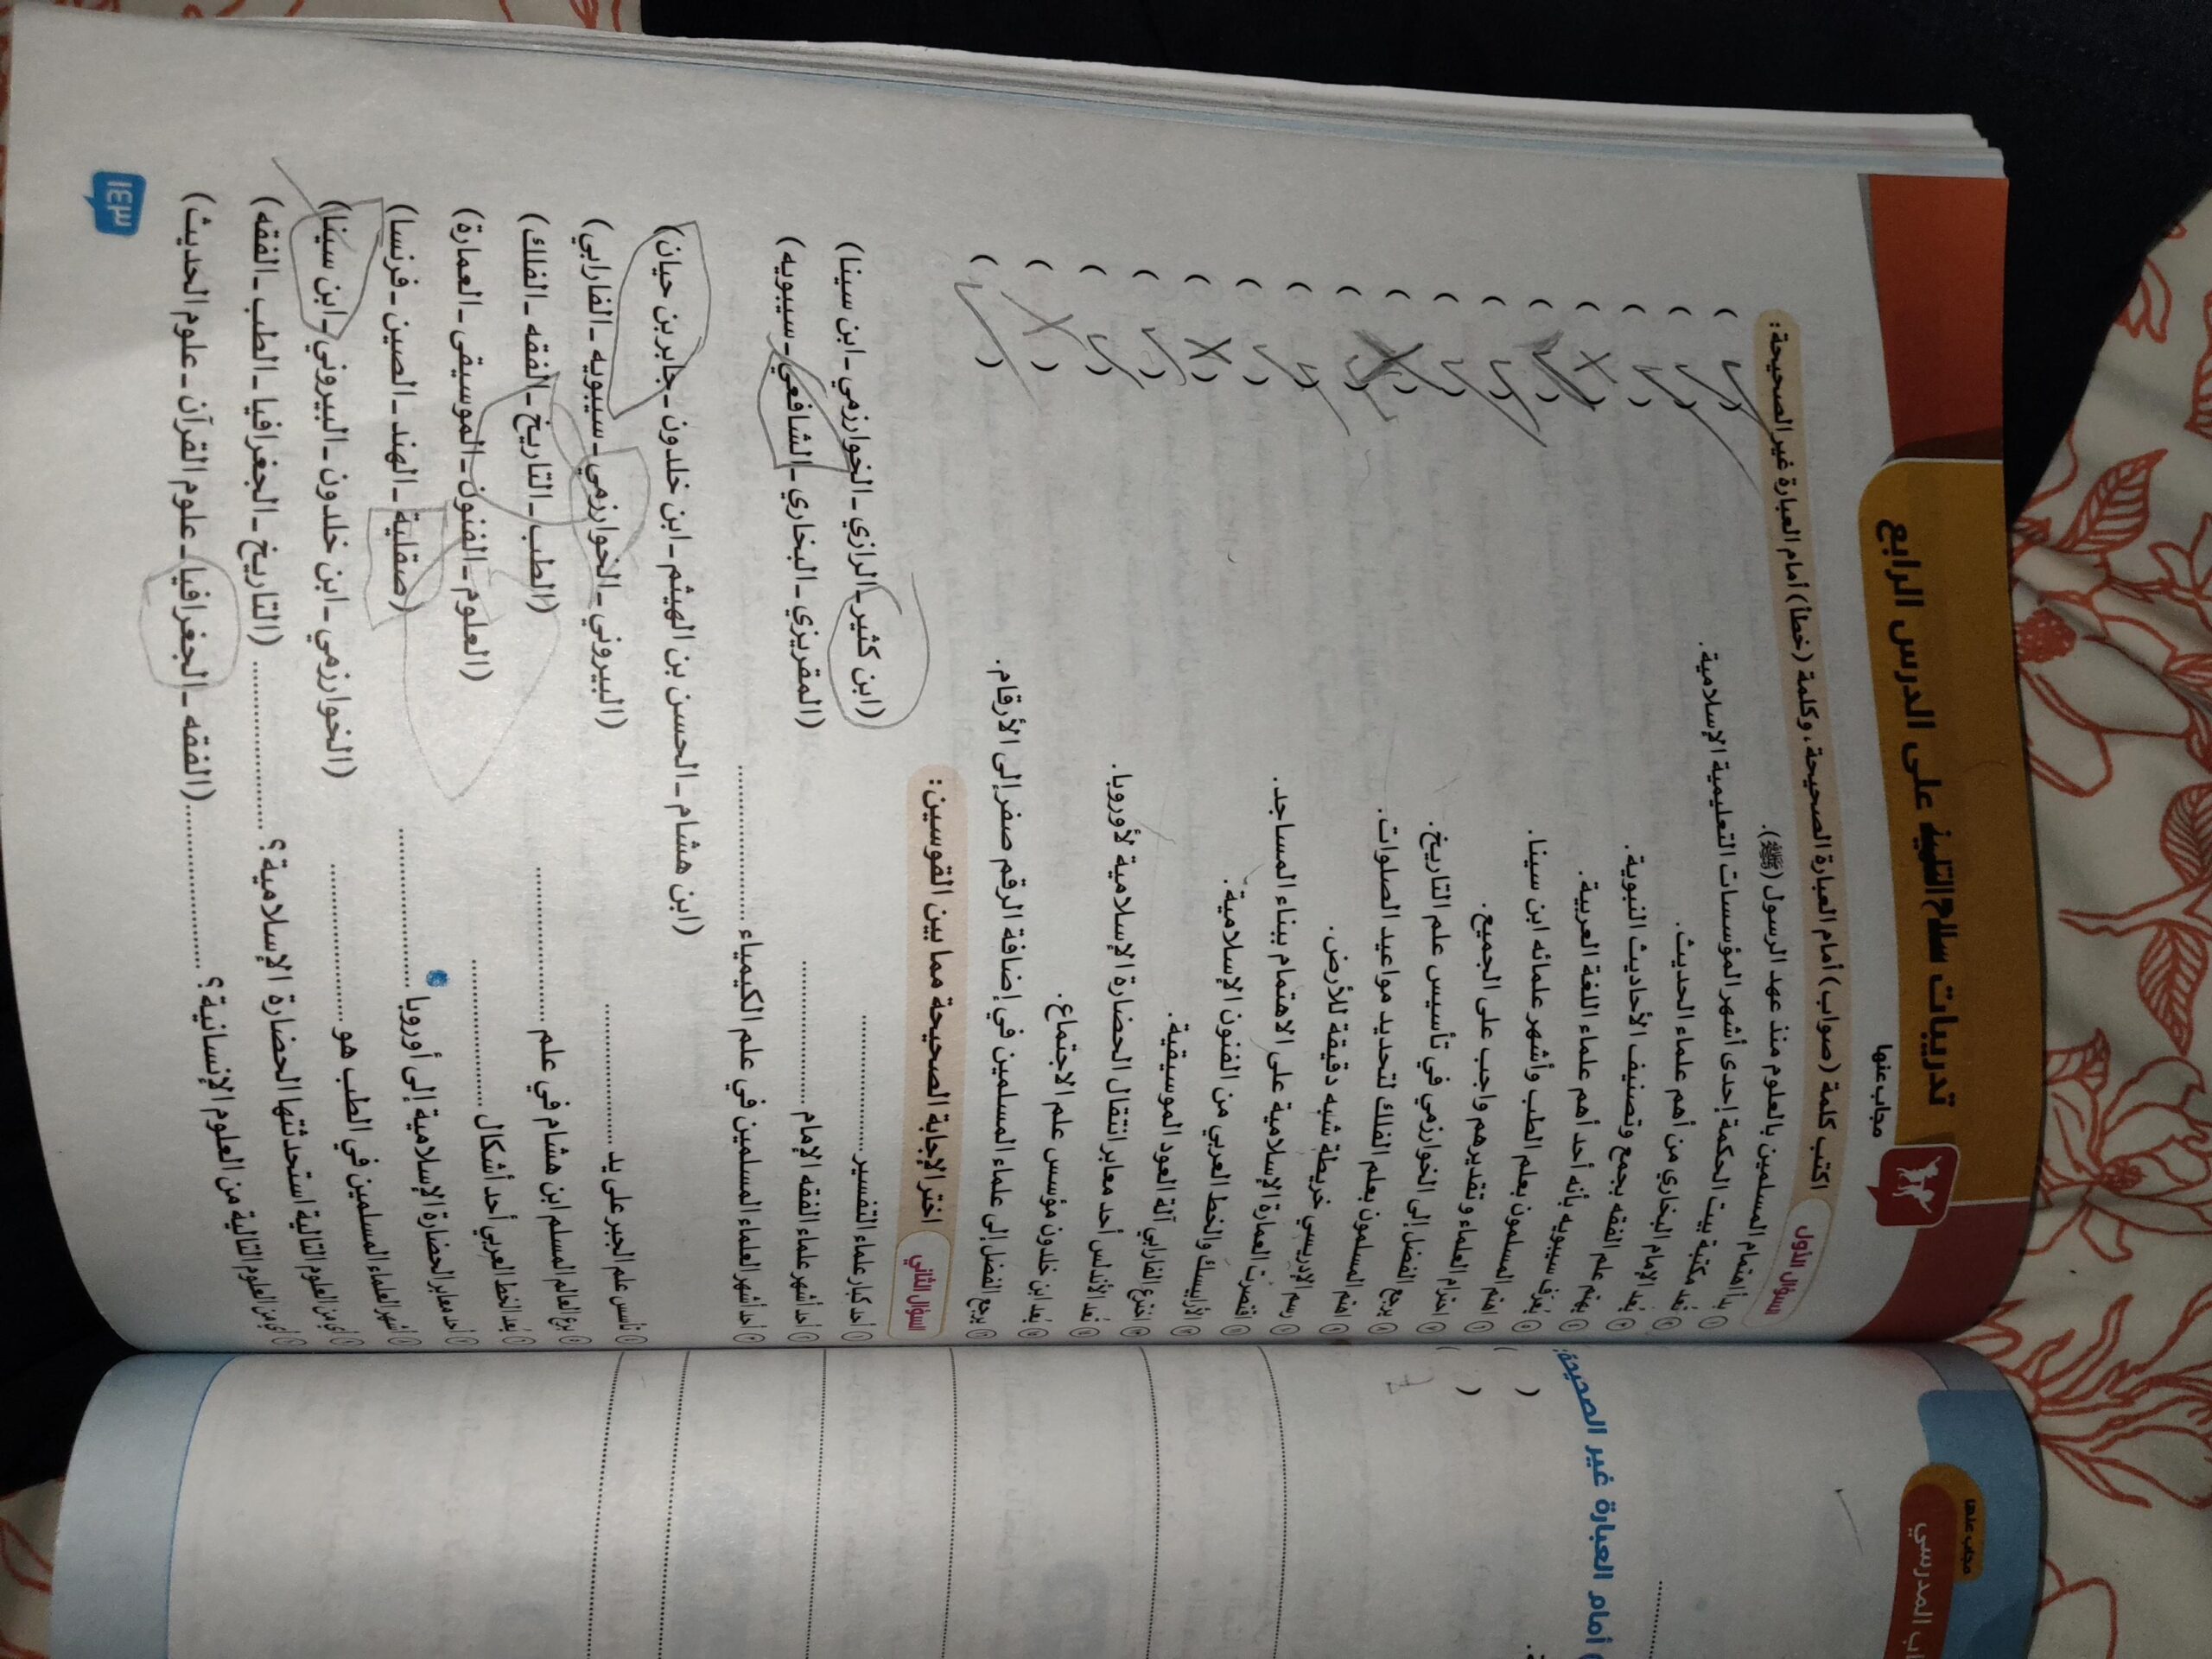 تدريبات سلاح التلميذ على الدرس الرابع
مجاب عنها
السؤال الأول
اكتب كلمة (صواب) أمام العبارة الصحيحة، وكلمة (خطأ) أمام العبارة غير الصحيحة:
١ بدأ اهتمام المسلمين بالعلوم منذ عهد الرسول (ﷺ). ( )
٢ تُعد مكتبة بيت الحكمة إحدى أشهر المؤسسات التعليمية الإسلامية. ( )
٣ يُعد الإمام البخاري من أهم علماء الحديث. ( )
٤ يهتم علم الفقه بجمع وتصنيف الأحاديث النبوية. ( )
٥ يُعرف سيبويه بأنه أحد أهم علماء اللغة العربية. ( )
٦ اهتم المسلمون بعلم الطب وأشهر علمائه ابن سينا. ( )
٧ احترام العلماء وتقديرهم واجب على الجميع. ( )
٨ يرجع الفضل إلى الخوارزمي في تأسيس علم التاريخ. ( )
٩ اهتم المسلمون بعلم الفلك لتحديد مواعيد الصلوات. ( )
١٠ رسم الإدريسي خريطة شبه دقيقة للأرض. ( )
١١ اقتصرت العمارة الإسلامية على الاهتمام ببناء المساجد. ( )
١٢ الأرابيسك والخط العربي من الفنون الإسلامية. ( )
١٣ اخترع الفارابي آلة العود الموسيقية. ( )
١٤ تُعد الأندلس أحد معابر انتقال الحضارة الإسلامية لأوروبا. ( )
١٥ يُعد ابن خلدون مؤسس علم الاجتماع. ( )
١٦ يرجع الفضل إلى علماء المسلمين في إضافة الرقم صفر إلى الأرقام.
السؤال الثاني
اختر الإجابة الصحيحة مما بين القوسين:
١ أحد كبار علماء التفسير ............... (ابن كثير - الرازي - الخوارزمي - ابن سينا)
٢ أحد أشهر علماء الفقه الإمام ............... (المقريزي - البخاري - الشافعي - سيبويه)
٣ أحد أشهر العلماء المسلمين في علم الكيمياء ...............
(ابن هشام - الحسن بن الهيثم - ابن خلدون - جابر بن حيان)
٤ تأسس علم الجبر على يد ............... (البيروني - الخوارزمي - سيبويه - الفارابي)
٥ برع العالم المسلم ابن هشام في علم ............... (الطب - التاريخ - الفقه - الفلك)
٦ يُعد الخط العربي أحد أشكال ............... (العلوم - الفنون - الموسيقى - العمارة)
٧ أحد معابر الحضارة الإسلامية إلى أوروبا ............... (صقلية - الهند - الصين - فرنسا)
٨ أشهر العلماء المسلمين في الطب هو ............... (الخوارزمي - ابن خلدون - البيروني - ابن سينا)
٩ أي من العلوم التالية استحدثتها الحضارة الإسلامية؟ ............... (التاريخ - الجغرافيا - الطب - الفقه)
١٠ أي من العلوم التالية من العلوم الإنسانية؟ ............... (الفقه - الجغرافيا - علوم القرآن - علوم الحديث)
١٤٣
مجاب عنها
اب المدرسي
أمام العبارة غير الصحيحة:
( )
( )